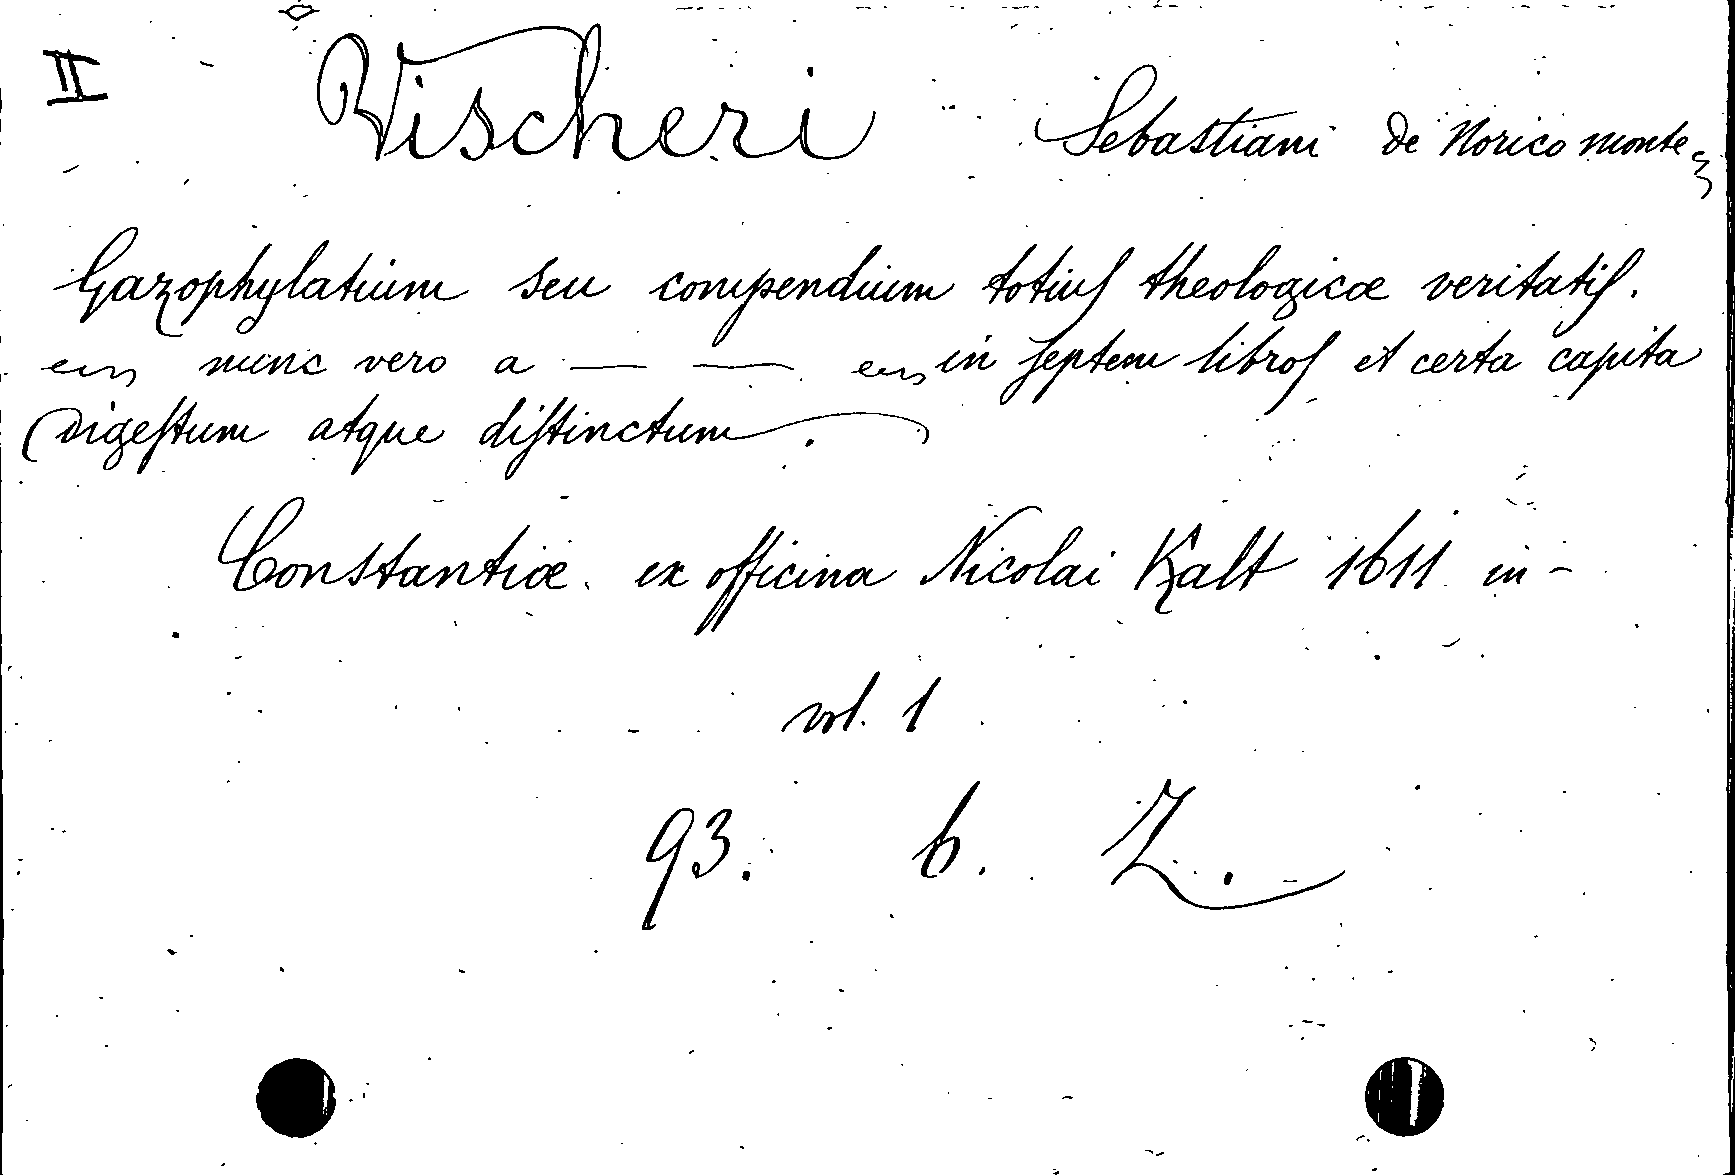 II Vischeri Sebastiani de Norico monte
Gazophylatium seu compendium totius theologicæ veritatis.
nunc vero a — — in septem libros et certa capita
digestum atque distinctum.
Constantiæ ex officina Nicolai Kalt 1611 in-
vol. 1
93. 6. Z.